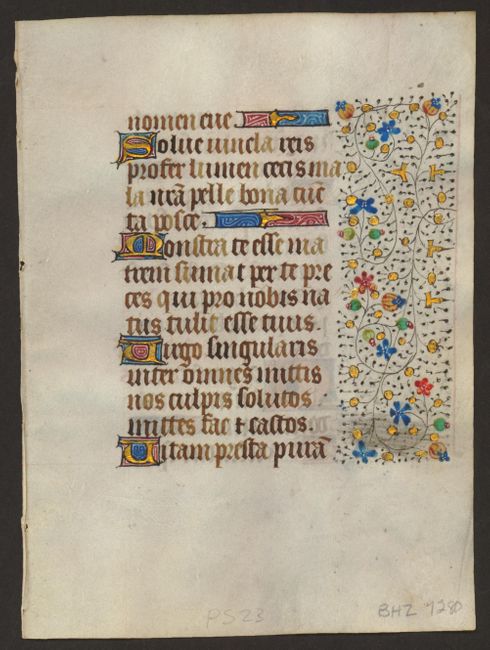 nomen eue.
Solue uincla reis
profer lumen cecis ma
la nr̃a pelle bona cũc
ta posce.
Monstra te esse ma
trem sumat per te pre
ces qui pro nobis na
tus tulit esse tuus.
Uirgo singularis
inter omnes mittis
nos culpis solutos
mittes fac ⁊ castos.
Uitam presta purã
PS23
BHZ 9280